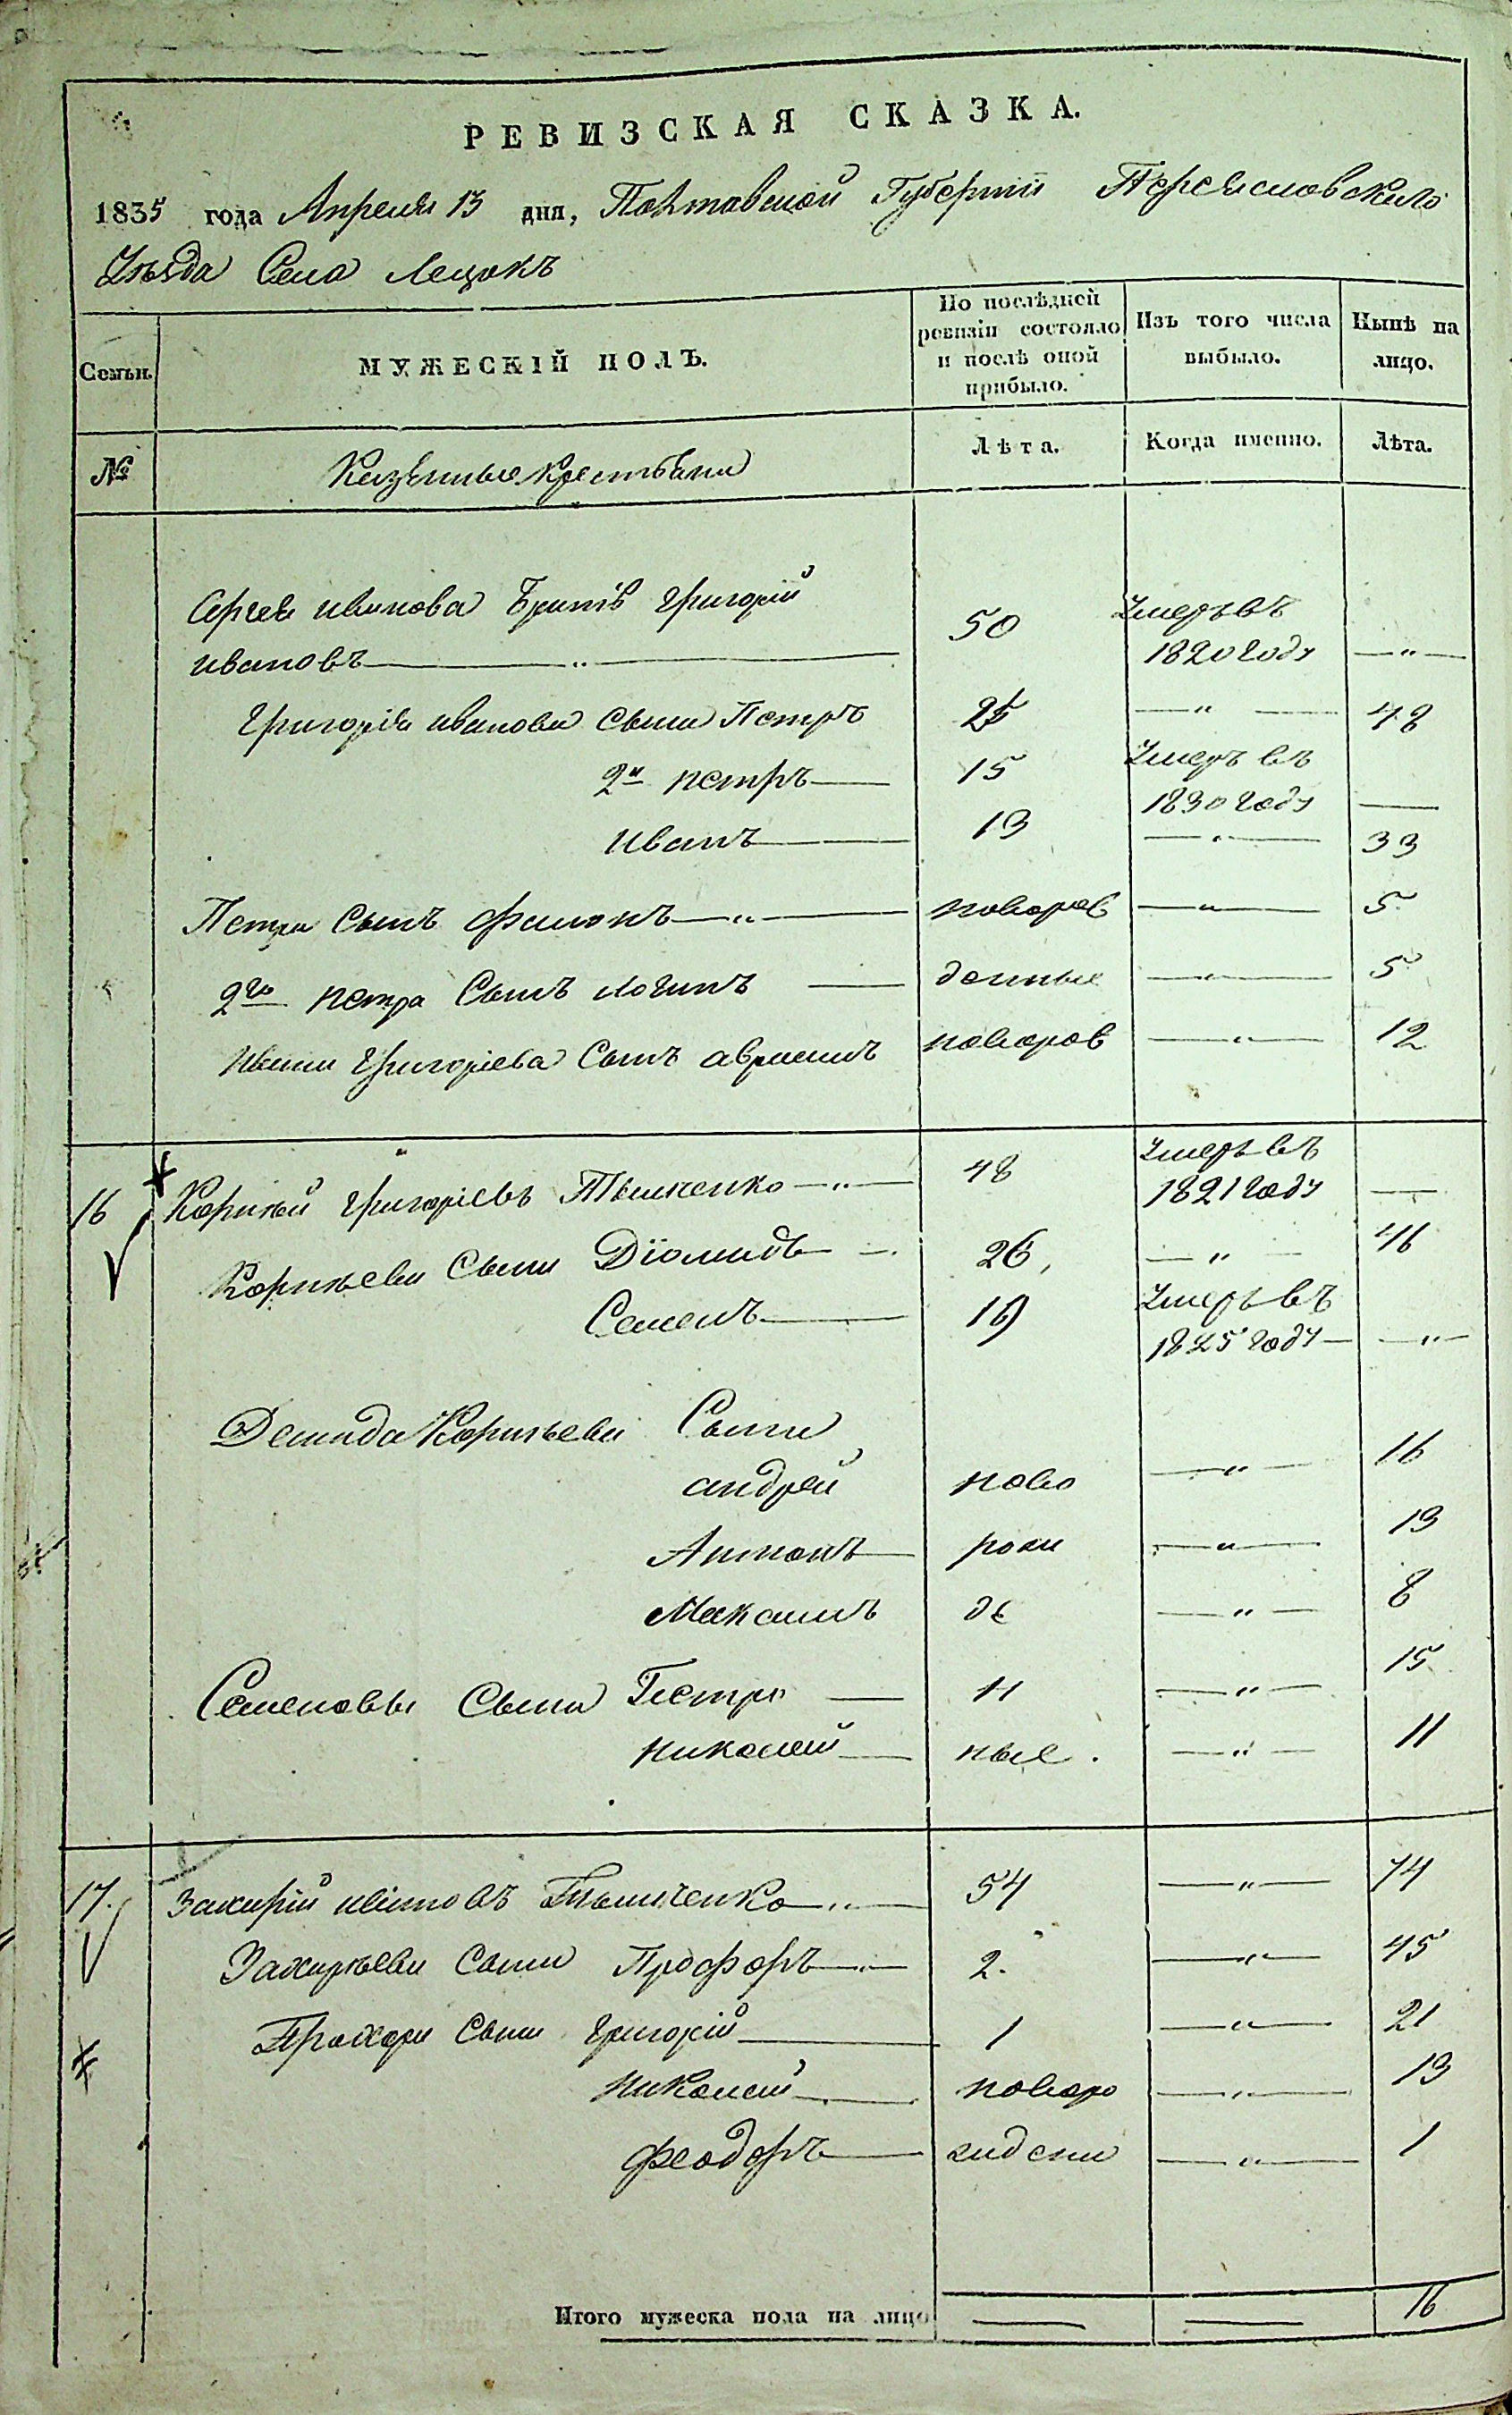 РЕВИЗСКАЯ СКАЗКА.
1835 года Апреля 13 дня, Полтавской Губернии Переясловского
Уезда Села Лецокъ
Семьи. МУЖЕСКІЙ ПОЛЪ. По послѣдней ревизіи состояло и послѣ оной прибыло. Изъ того числа выбыло. Нынѣ на лицо.
№ Казенные крестьяне Лѣта. Когда именно. Лѣта.
Сергея иванова Братъ григорій
ивановъ — „ — 50 Умеръ въ 1820 году — „ —
григорія иванова сыны Петръ 25 — „ — 48
2й петръ — 15 Умеръ въ 1830 году —
иванъ — 13 — „ — 33
Петра Сынъ филонъ — „ — новоров — „ — 5
2го петра Сынъ логинъ — денные — „ — 5
ивана григоріева Сынъ аврамъ новоров — „ — 12
16 Корнѣй григоріевъ — „ — 48 Умеръ въ 1821 году —
Корнѣевы Сыны Діомидъ — 26, — „ — 46
Семенъ — 19 Умеръ въ 1825 году — — „ —
Демида Корнѣева Сыны
андрей ново — „ — 16
Антонъ — рож — „ — 13
Максимъ де — „ — 8
Семеновы Сыны Петро — н — „ — 15
николай — ные . — „ — 11
17. Захарій ивановъ — „ — 54 — „ — 74
Захарьевы Сыны Прохоръ — „ — 2. — „ — 45
Прохора Сыны григорій — 1 — „ — 21
николай — новоро — „ — 13
феодоръ — — „ — 1
Итого мужеска пола на лицо — — 16